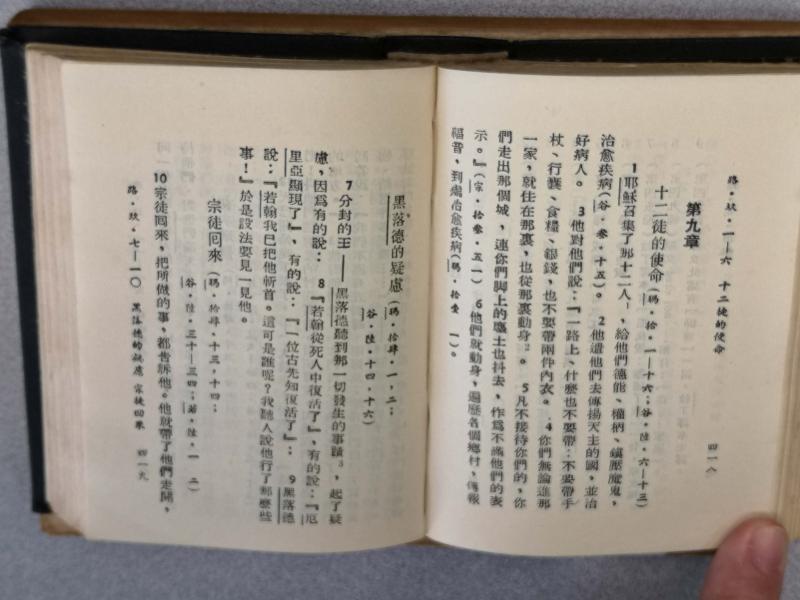 路·玖·一—六　十二徒的使命
四一八
第九章
十二徒的使命(瑪·拾·1—十六；谷·陸·六—十三)
1耶穌召集了那十二人1，給他們德能、權柄、鎮壓魔鬼，
治愈疾病(谷·叁·十五)。 2他遣他們去傳揚天主的國，並治
好病人。 3他對他們說：『一路上，什麽也不要帶：不要帶手
杖、行囊、食糧、銀錢，也不要帶兩件內衣。 4你們無論進那
一家，就住在那裏，也從那裏動身2。 5凡不接待你們的，你
們走出那個城，連你們脚上的塵土也抖去，作爲不滿他們的表
示。』(宗·拾叁·五一) 6他們就動身，遍歷各個鄉村，傳報
福音，到處治愈疾病(瑪·拾壹 1)。
黑落德的疑慮(瑪·拾肆·1，2；
谷·陸·十四·十六)
7分封的王——黑落德聽到那一切發生的事蹟3，起了疑
慮，因爲有的說： 8『若翰從死人中復活了』，有的說：『厄
里亞顯現了』，有的說：『一位古先知復活了』： 9黑落德
說：『若翰我已把他斬首。這可是誰呢？我聽人說他行了那麽些
事！』於是設法要見一見他。
宗徒囘來(瑪·拾肆·十三，十四；
谷·陸·三十—三四；若·陸·1 2)
10宗徒囘來，把所做的事，都告訴他。他就帶了他們走開，
路·玖·七—一〇　黑落德的疑慮 宗徒囘來
四一九